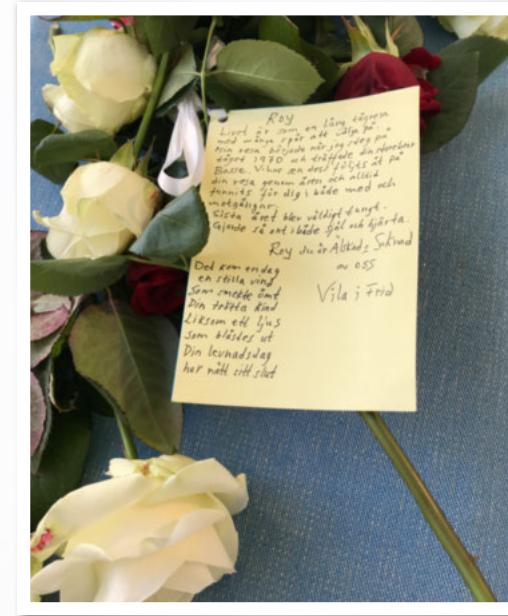 Roy
Livet är som en lång tågresa
med många spår att välja på.
Min resa började när jag steg på
tåget 1970 och träffade din storebror
Basse. Vi har en del följts åt på
din resa genom åren och alltid
funnits för dig i både med och
motgångar.
Sista året blev väldigt tungt.
Gjorde så ont i både själ och hjärta.
Roy du är Älskad & Saknad
av oss
Vila i Frid
Det kom en dag
en stilla vind
Som smekte ömt
Din trötta Kind
Liksom ett ljus
som blåstes ut
Din levnadsdag
har nått sitt slut